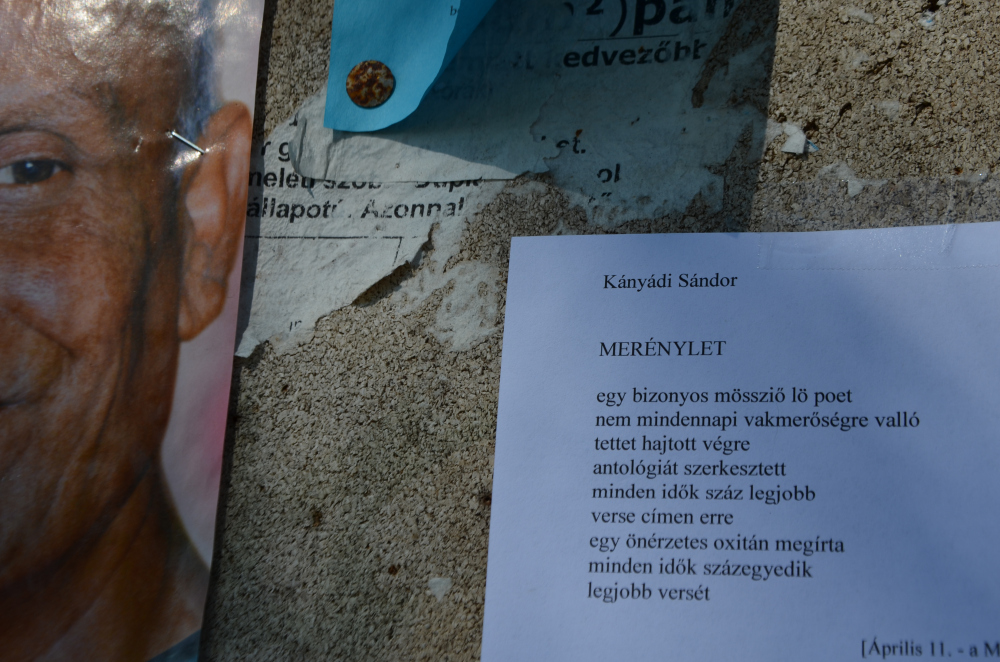 ²)pan
edvezőbb
állapot
Azonnal
Kányádi Sándor
MERÉNYLET
egy bizonyos mösszió lö poet
nem mindennapi vakmerőségre valló
tettet hajtott végre
antológiát szerkesztett
minden idők száz legjobb
verse címen erre
egy önérzetes oxitán megírta
minden idők százegyedik
legjobb versét
[Április 11. - a M